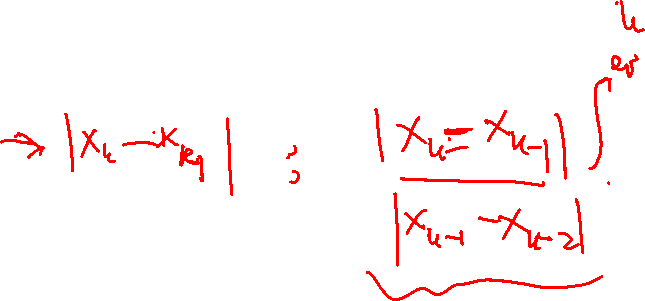 → |x_k - x_{k-1}| ; |x_k - x_{k-1}|
|x_{k-1} - x_{k-2}|